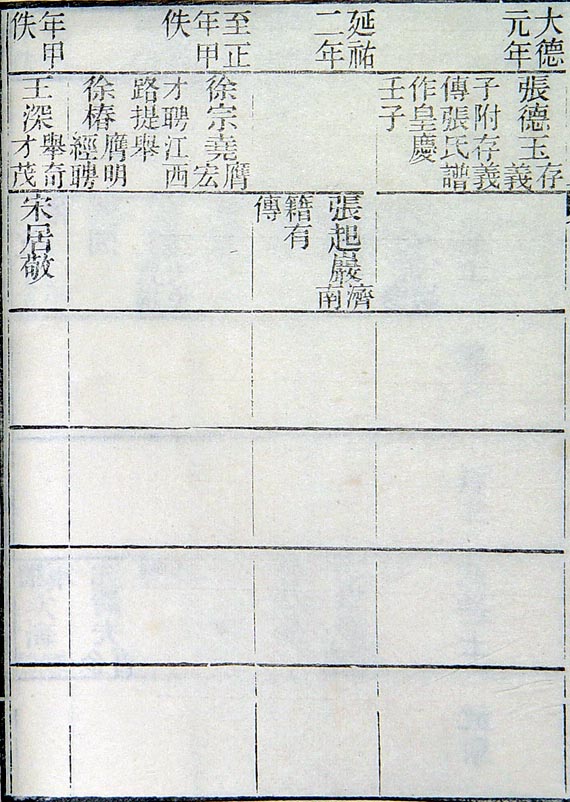 大德
元年
張德玉存
義
子附存義
傳張氏譜
作皇慶
壬子
延祐
二年
張起巖濟
南
籍有
傳
至正
年甲
佚
徐宗堯膺
宏
才聘江西
路提舉
徐椿膺明
經聘
年甲
佚
王深舉奇
才茂
宋居敬